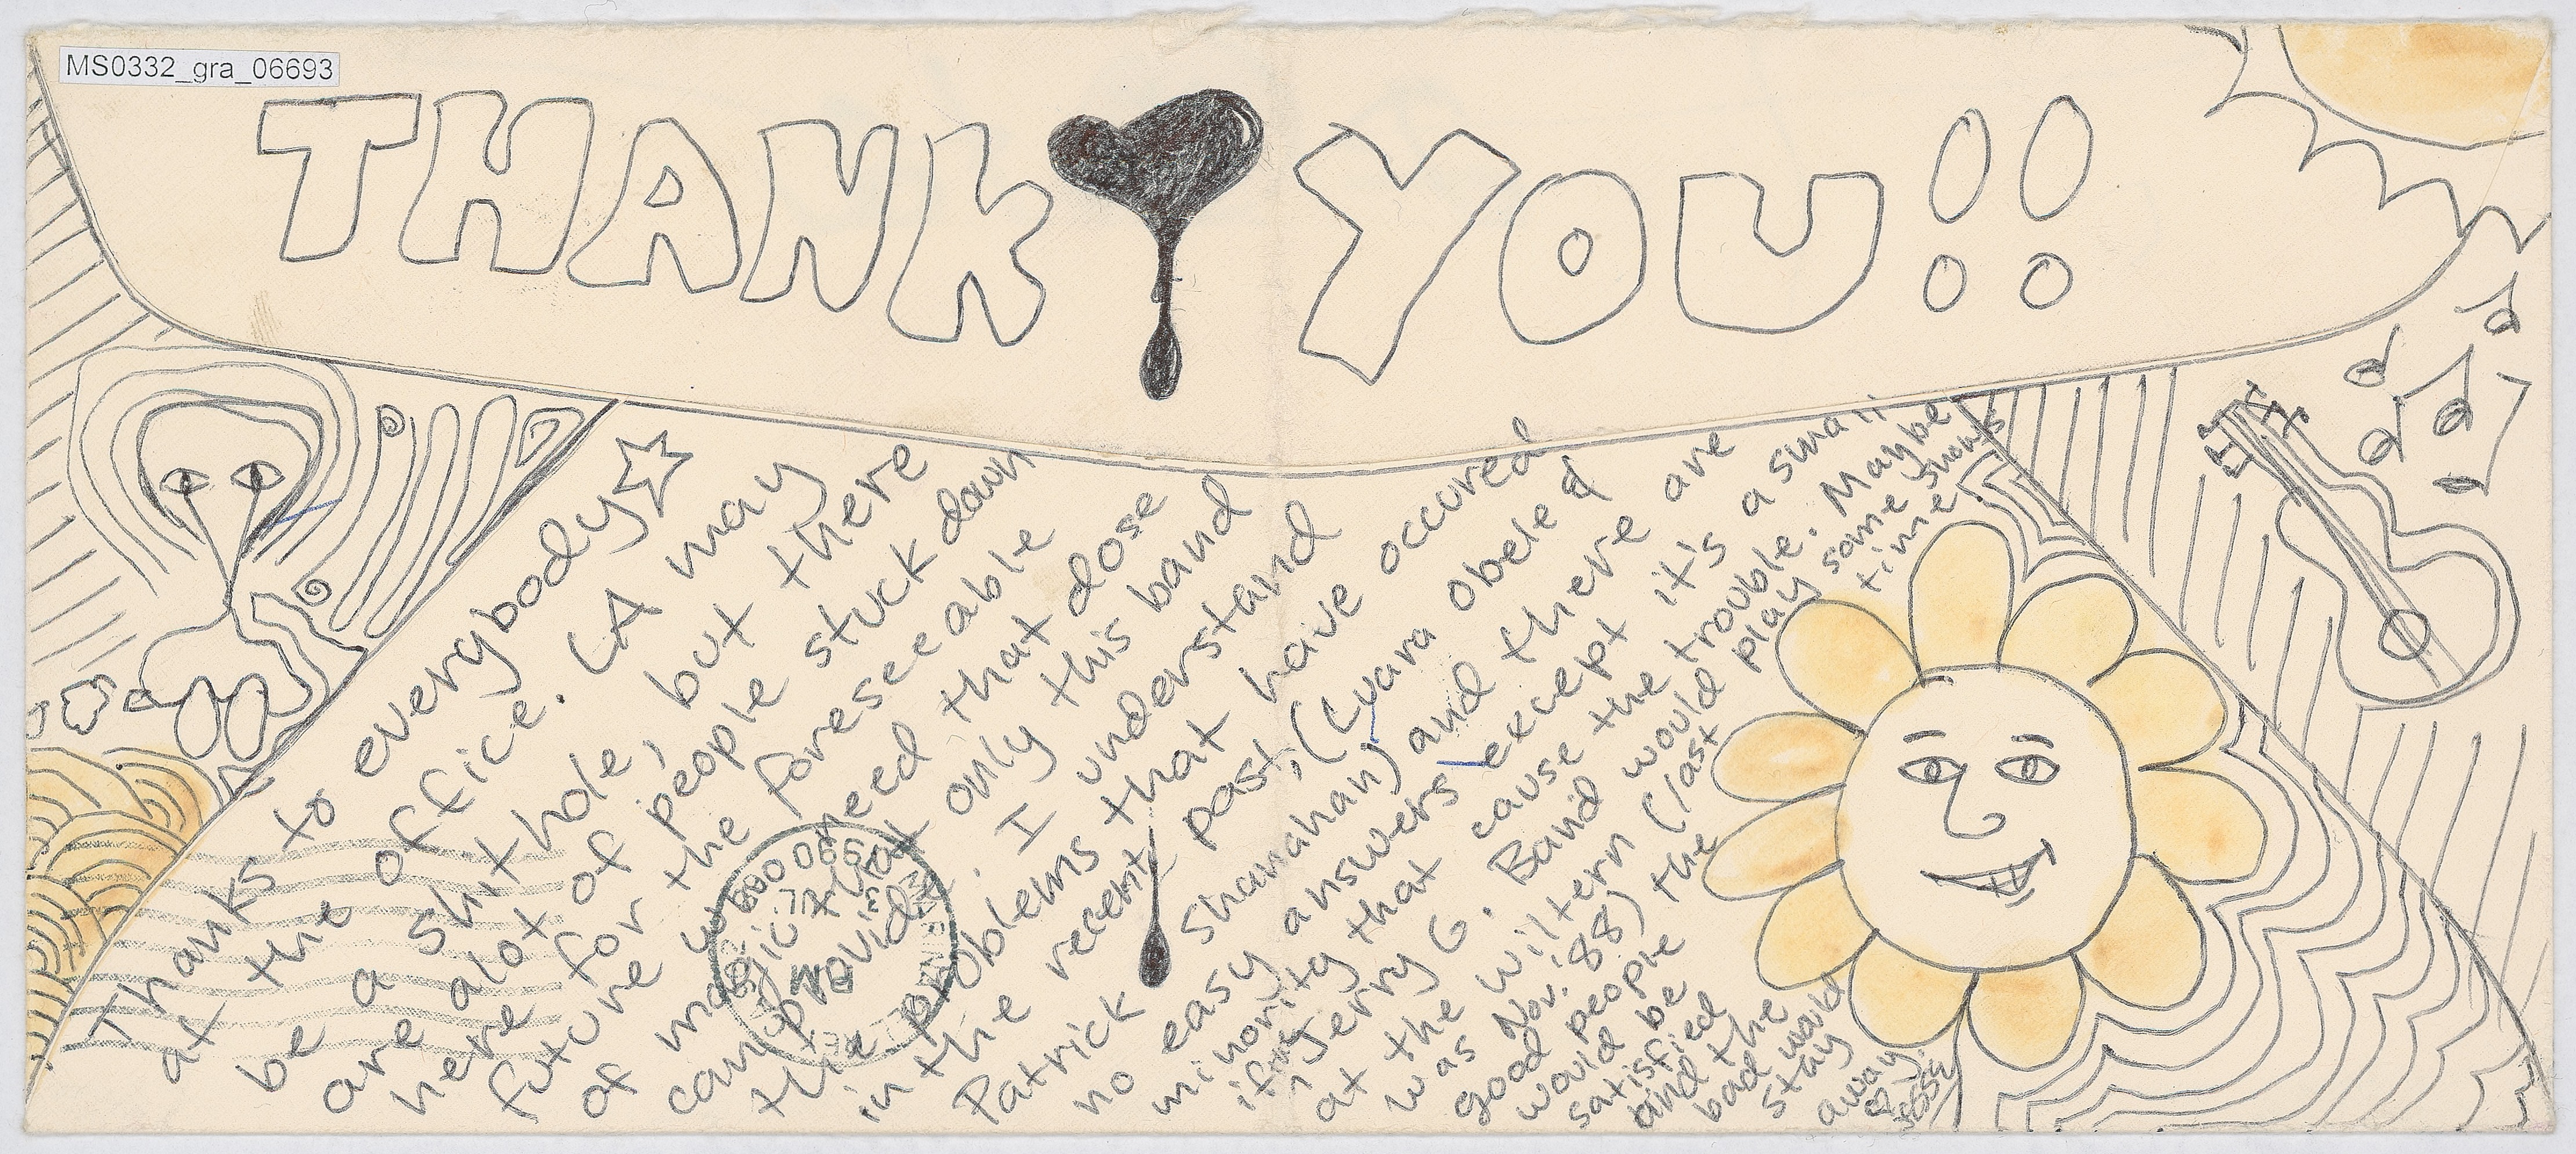 MS0332_gra_06693
THANK YOU!!
Thanks to everybody
at the office. LA may
be a shithole, but there
are alot of people stuck down
here for the foreseeable
future who need that dose
of magic that only this band
can provide. I understand
the problems that have occured
in the recent past, (Luara obele &
Patrick Shanahan) and there are
no easy answers except it's a small
minority that cause the trouble. Maybe
if Jerry G. Band would play some shows
at the Wiltern (last time
was Nov. '88) the
good people
would be
satisfied
and the
bad would
stay
away.